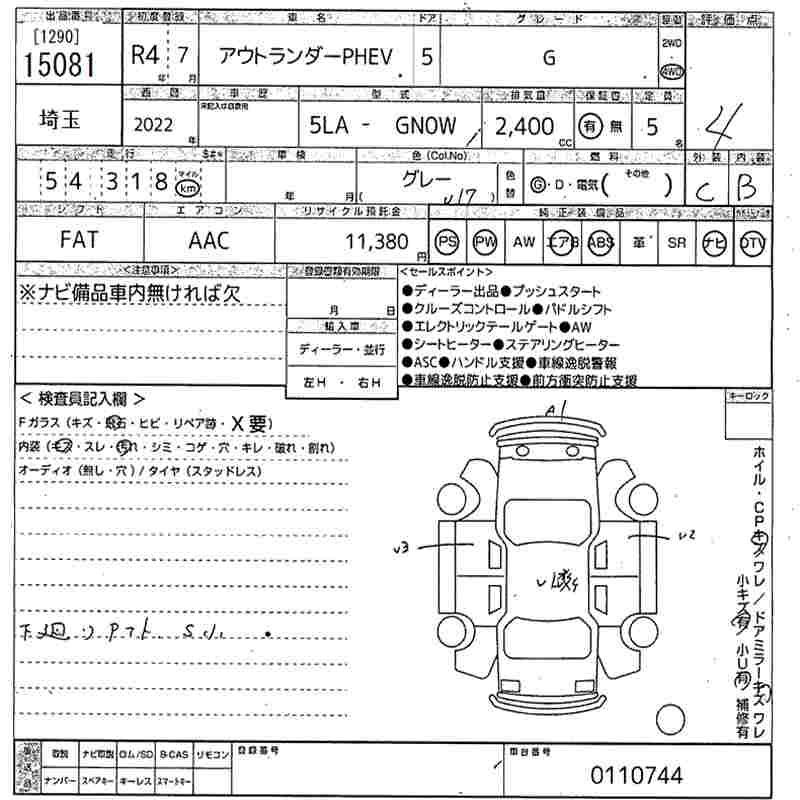 出品番号 初度登録 車名 ドア グレード 駆動 評価点
[1290] 2WD
15081 R4 年 7 月 アウトランダーPHEV 5 G 4WD
埼玉 西暦 車歴 型式 排気量 保証書 定員 4
未記入は自家用
2022 年 5LA - GN0W 2,400 cc 有 無 5 名
走行 車検 色(Col.No) 燃料 外装 内装
54318 マイル km 年 月 グレー ( U17 ) 色替 G・D・電気( その他 ) C B
シフト エアコン リサイクル預託金 純正装備品
FAT AAC 11,380 円 PS PW AW エアB ABS 革 SR ナビ DTV
<注意事項> 登録書類有効期限 <セールスポイント>
※ナビ備品車内無ければ欠 月 日 ●ディーラー出品●プッシュスタート
●クルーズコントロール●パドルシフト
輸入車 ●エレクトリックテールゲート●AW
ディーラー・並行 ●シートヒーター●ステアリングヒーター
●ASC●ハンドル支援●車線逸脱警報
左H ・ 右H ●車線逸脱防止支援●前方衝突防止支援
<検査員記入欄> キーロック
Fガラス(キズ・飛石・ヒビ・リペア跡・X要)
内装(キズ・スレ・汚れ・シミ・コゲ・穴・キレ・破れ・割れ)
オーディオ(無し・穴)/タイヤ(スタッドレス)
A1
U3
U2
ホイル・CPキズワレ/ドアミラーキズワレ
小キズ有/小U有/補修有
取説 ナビ取説 ROM/SD B-CAS リモコン 登録番号 車台番号
ナンバー スペアキー キーレス スマートキー 0110744